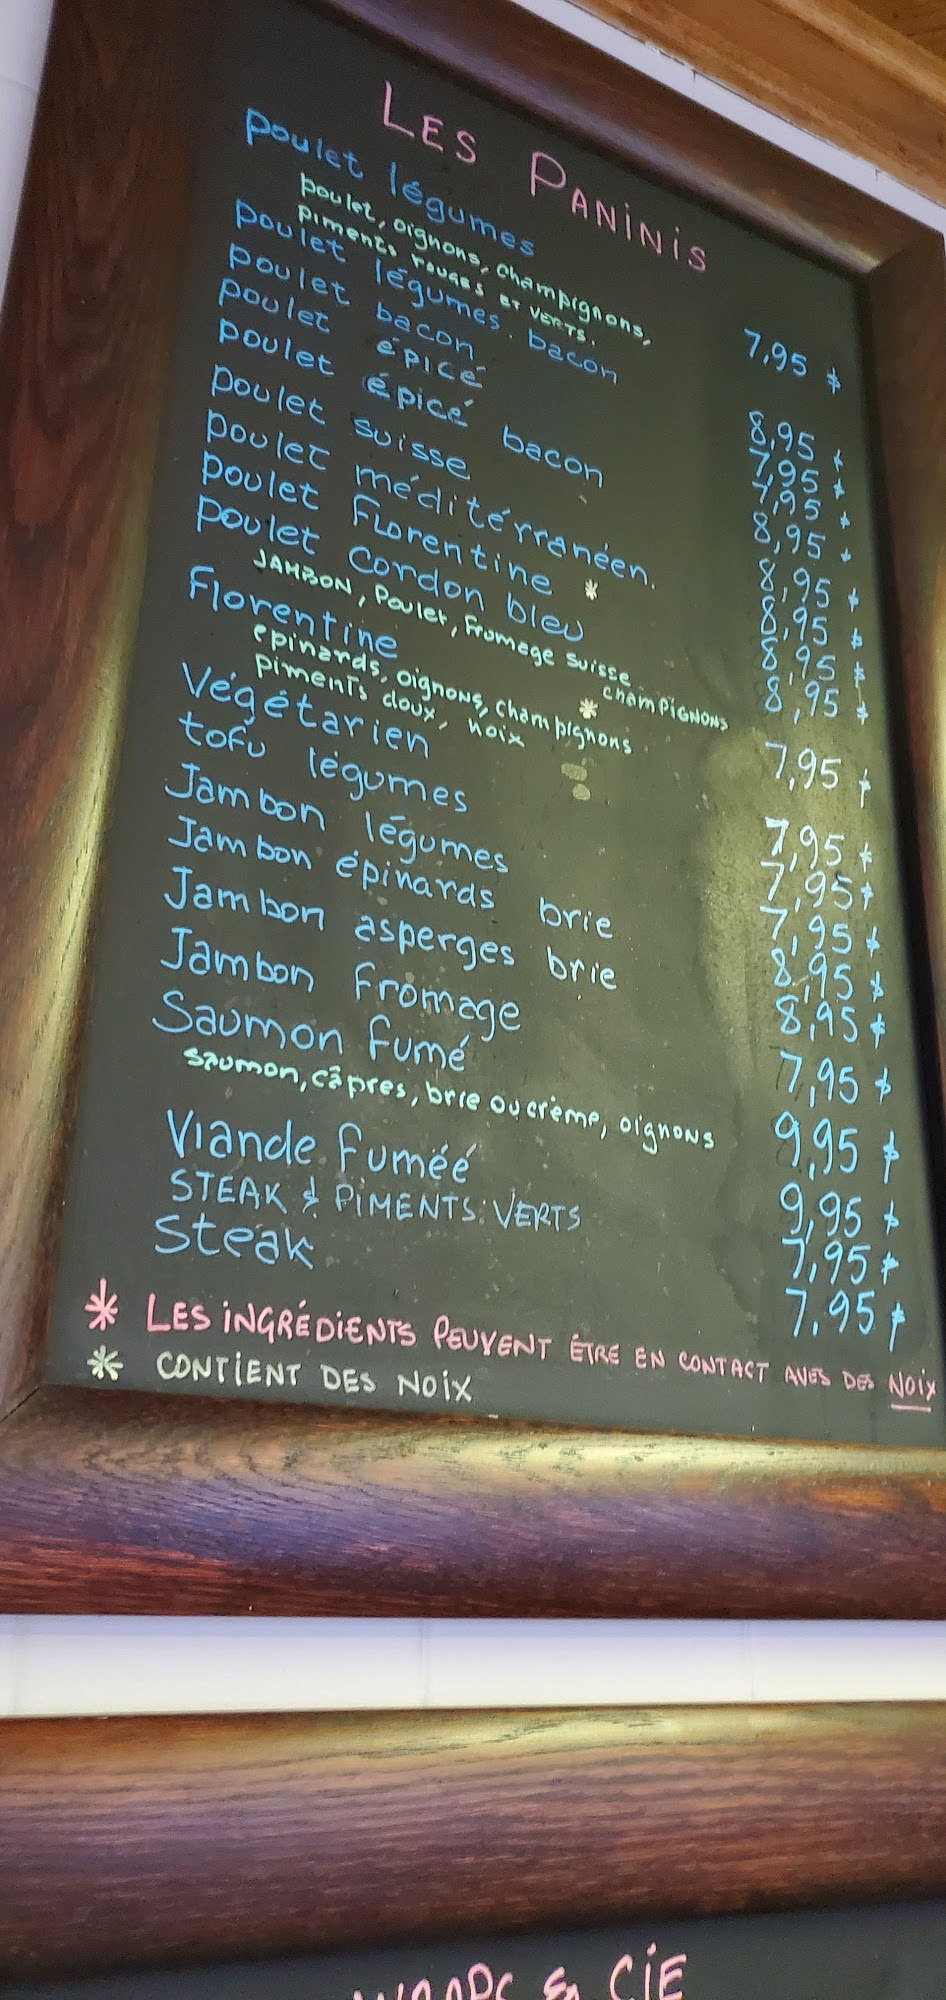 LES PANiNiS
poulet légumes 7,95 $
poulet, oignons, champignons,
piments rouges et verts.
poulet légumes. bacon 8,95 $
poulet bacon 7,95 $
poulet épicé 7,95 $
poulet épicé bacon 8,95 $
poulet suisse 8,95 $
poulet méditérranéen. 8,95 $
poulet Florentine * 8,95 $
poulet Cordon bleu 8,95 $
JAMBON, Poulet, fromege suisse
champignons
Florentine 7,95 $
epinards, oignons, champignons *
piments doux, noix
Végétarien 7,95 $
tofu légumes 7,95 $
Jambon légumes 7,95 $
Jambon épinards brie 8,95 $
Jambon asperges brie 8,95 $
Jambon Fromage 7,95 $
Saumon fumé 9,95 $
saumon, câpres, brie ou crème, oignons
Viande fuméé 9,95 $
STEAK & PIMENTS VERTS 7,95 $
Steak 7,95 $
* LES iNGRÉDiENTS PEUVENT ÊTRE EN CONTACT AVES DES NOiX
* CONTiENT DES NOiX
& CiE